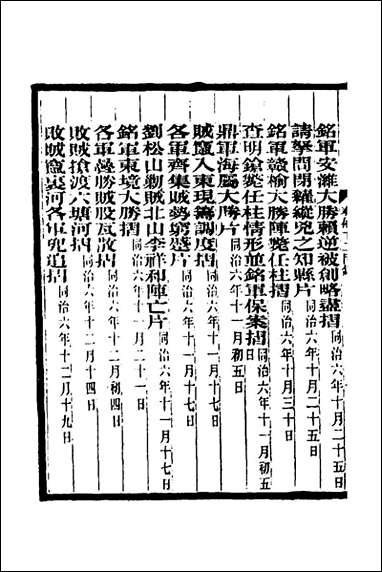 銘軍安濰大勝賴逆被創略盡摺同治六年十月二十五日
請拏問閉糴縱兇之知縣片同治六年十月二十五日
銘軍贛榆大勝陣斃任柱摺同治六年十月三十日
查明鎗斃任柱情形並銘軍保案摺同治六年十一月初五日
鼎軍海屬大勝片同治六年十一月初五日
賊竄入東現籌調度摺同治六年十一月十七日
各軍齊集賊勢窮蹙片同治六年十一月十七日
劉松山勦賊北山李祥和陣亡片同治六年十一月十七日
銘軍東境大勝摺同治六年十一月二十一日
各軍疊勝賊股瓦散摺同治六年十二月初四日
敗賊搶渡六塘河摺同治六年十二月十四日
敗賊竄裏河各軍兜追摺同治六年十二月十九日